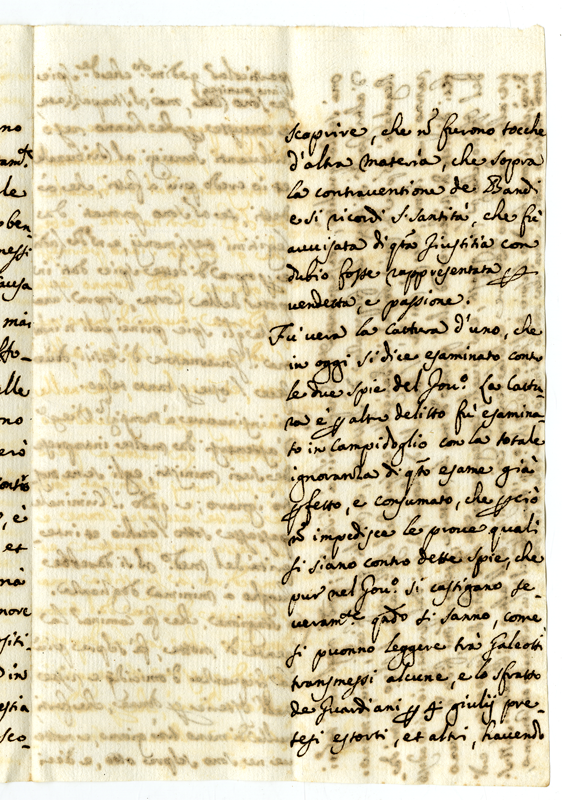 scoprire, che nõ furono tocche
d'altra materia, che sopra
la contraventione de Bandi
e si ricordi S. Santità, che fù
avvisata di qta Giustitia con
dubio fosse rappresentata p
vendetta, e passione.
Fù vera la cattura d'uno, che
in oggi si dice esaminato contro
le due spie del Gouo. La Cattu-
ra è p altro delitto fù esamina-
to in Campidoglio con la totale
ignoranza di qto esame già
pfetto, e consumato, che pciò
nõ impedisce le prove quali
si siano contro dette spie, che
pur nel Gouo. si castigano se-
veramte qãdo si sanno, come
si puonno leggere trà Galeotti
transmessi alcune, e lo sfratto
de Guardiani p 4 giulij pre-
tesi estorti, et altri, havendo
no
amte
le
oben-
messi
mai
elle
no
erò
è
et
nore
siti-
in
sco-